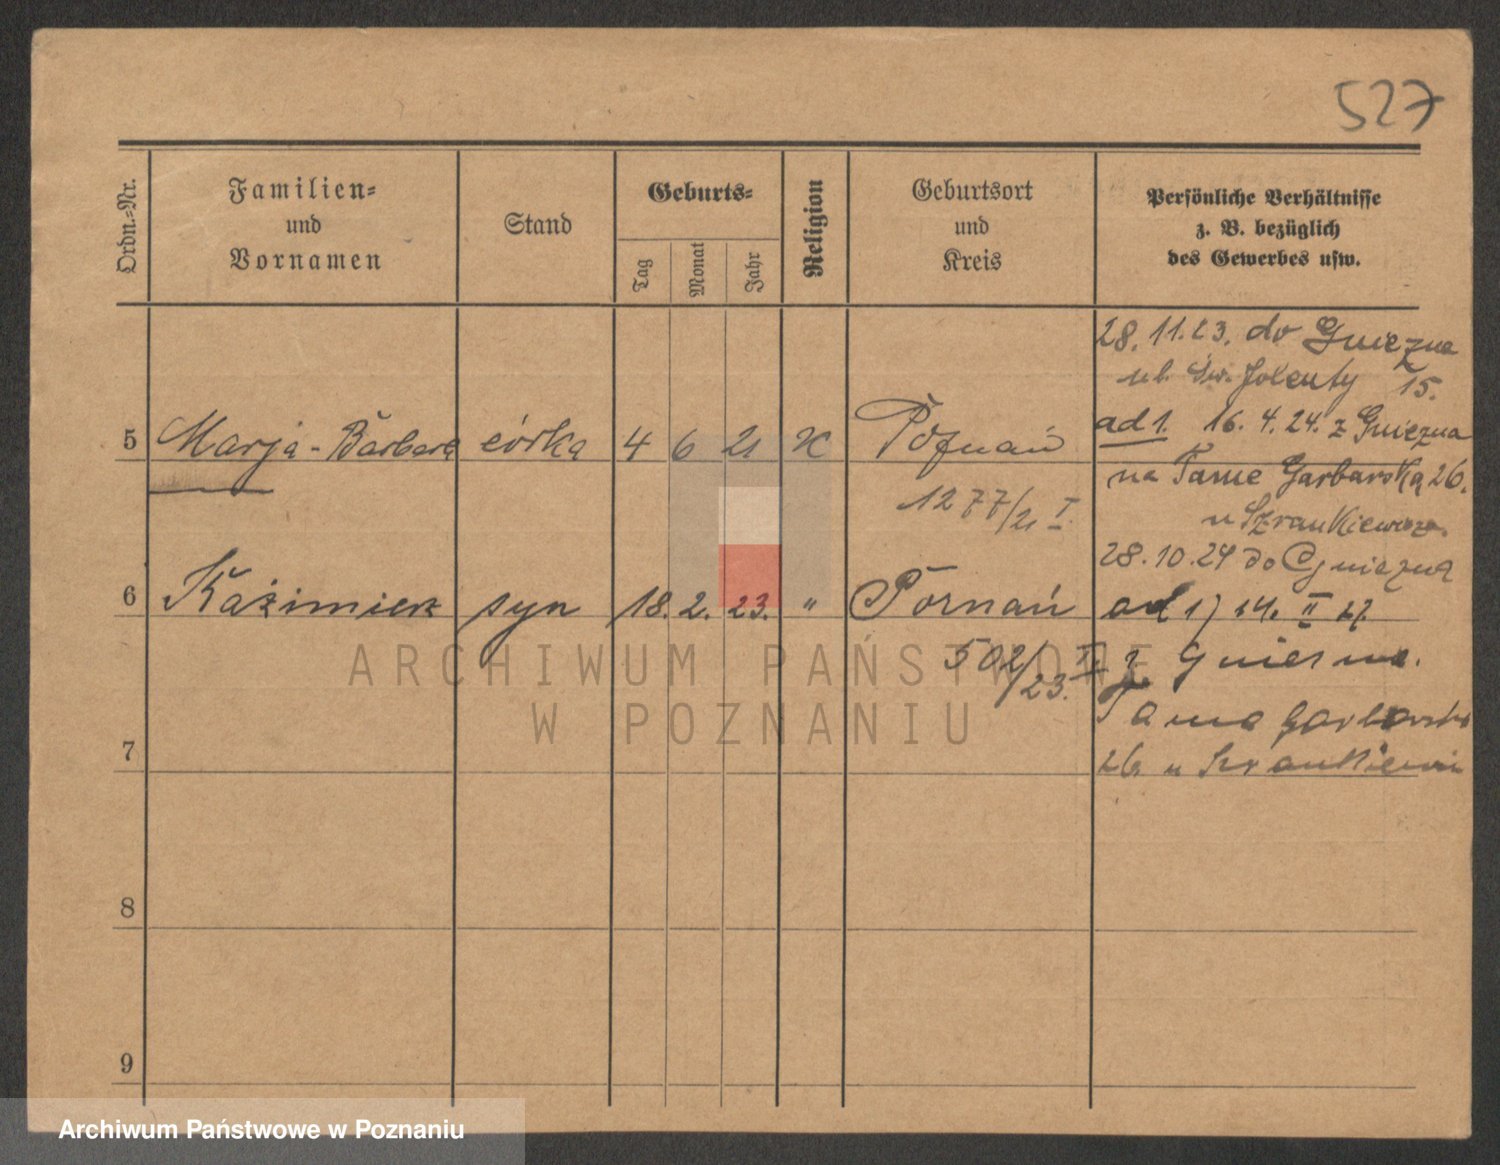 527
Ordn.-Nr.
Familien- und Vornamen
Stand
Geburts-
Tag
Monat
Jahr
Religion
Geburtsort und Kreis
Persönliche Verhältnisse
z. B. bezüglich
des Gewerbes usw.
28.11.23. do Gniezna
ul. Św. Jolenty 15.
5 Marja-Barbara córka 4 6 21 K Poznań
ad 1. 16.4.24. z Gniezna
na Tame Garbarską 26.
1277/21 I
u Szrankiewicza.
28.10.24 do Gniezna
6 Kaźimierz syn 18. 2. 23. " Poznań
ad 1) 14. II 27.
502/23. I
z Gniezna.
Tama Garbarska
26 u Szrankiewicz
7
8
9
ARCHIWUM PAŃSTWOWE
W POZNANIU
Archiwum Państwowe w Poznaniu